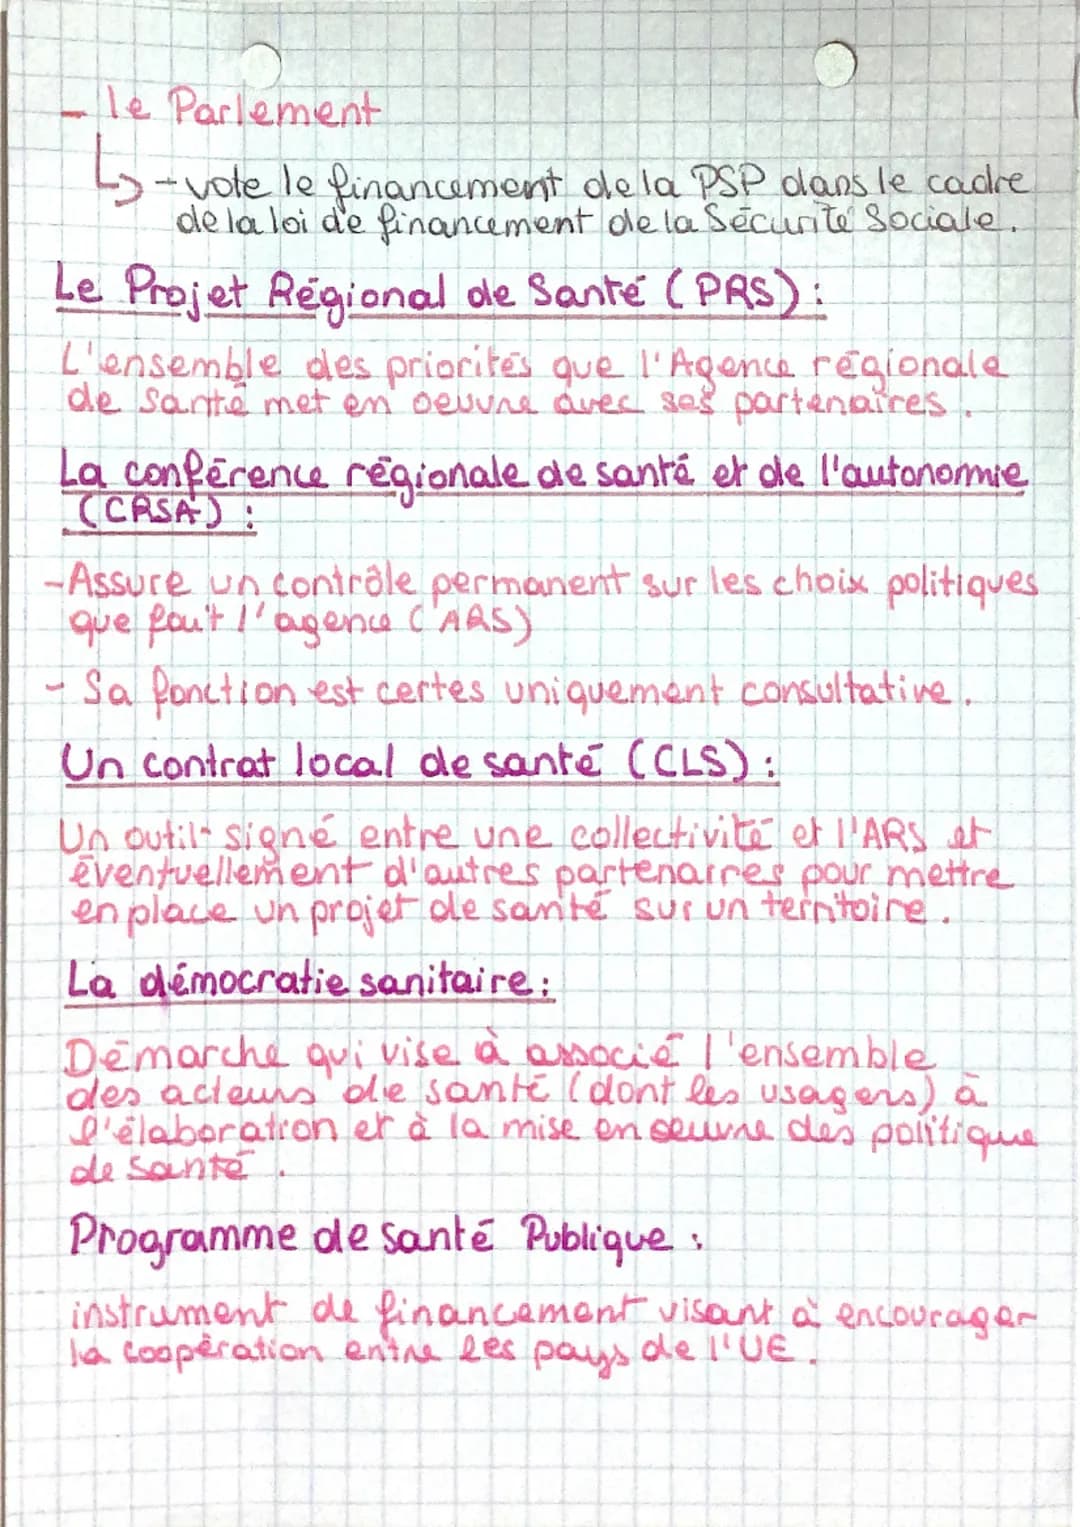 - le Parlement
↳ - vote le financement de la PSP dans le cadre
de la loi de financement de la Sécurité Sociale.
Le Projet Régional de Santé (PRS) :
L'ensemble des priorités que l'Agence régionale
de santé met en oeuvre avec ses partenaires.
La conférence régionale de santé et de l'autonomie
(CRSA) :
- Assure un contrôle permanent sur les choix politiques
que fait l'agence (ARS)
- Sa fonction est certes uniquement consultative.
Un contrat local de santé (CLS) :
Un outil signé entre une collectivité et l'ARS et
éventuellement d'autres partenaires pour mettre
en place un projet de santé sur un territoire.
La démocratie sanitaire :
Démarche qui vise à associé l'ensemble
des acteurs de santé (dont les usagers) à
l'élaboration et à la mise en oeuvre des politique
de santé.
Programme de santé Publique :
instrument de financement visant à encourager
la coopération entre les pays de l'UE.